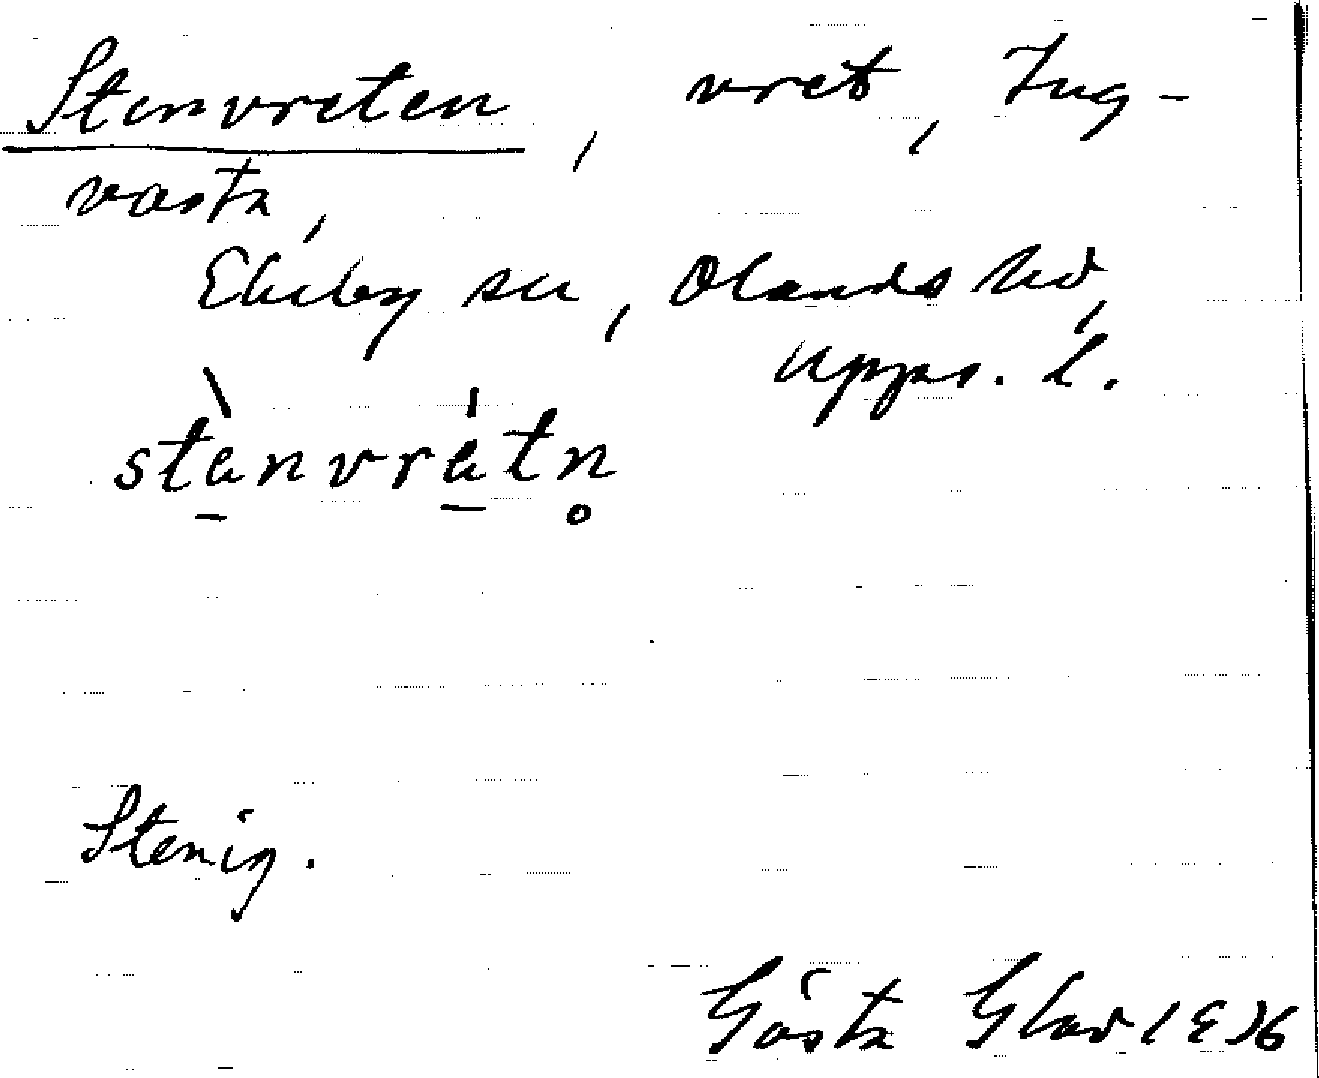 Stenvreten, vret, Ing-
vasta,
Ekeby sn, Olands hd,
Upps. l.
stènvrétn̥
Stenig.
Gösta Glad 1936